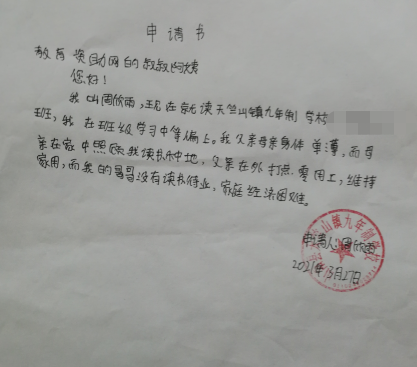 申请书
教育资助网的叔叔阿姨
您好！
我叫周欣雨，现在就读天竺山镇九年制学校
班，我在班级学习中等偏上。我父亲母亲身体单薄，而母
亲在家中照顾我读书和种地，父亲在外打点零用工，维持
家用，而我的哥哥没有读书待业，家庭经济困难。
申请人：周欣雨
2021年3月27日
山镇九年制学校